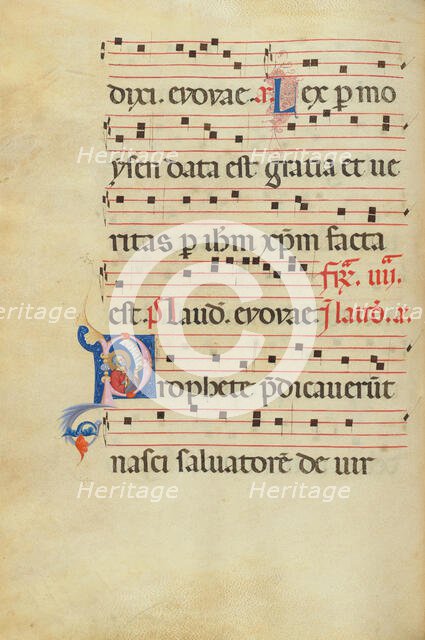 dixi. evovae. a. Lex p mo
ysen data est gratia et ve
ritas p ihm xpm facta
est. ps Laud. evovae.
Prophete pdicaverūt
nasci salvatorē de vir
Heritage Heritage
Heritage Heritage
Heritage Heritage